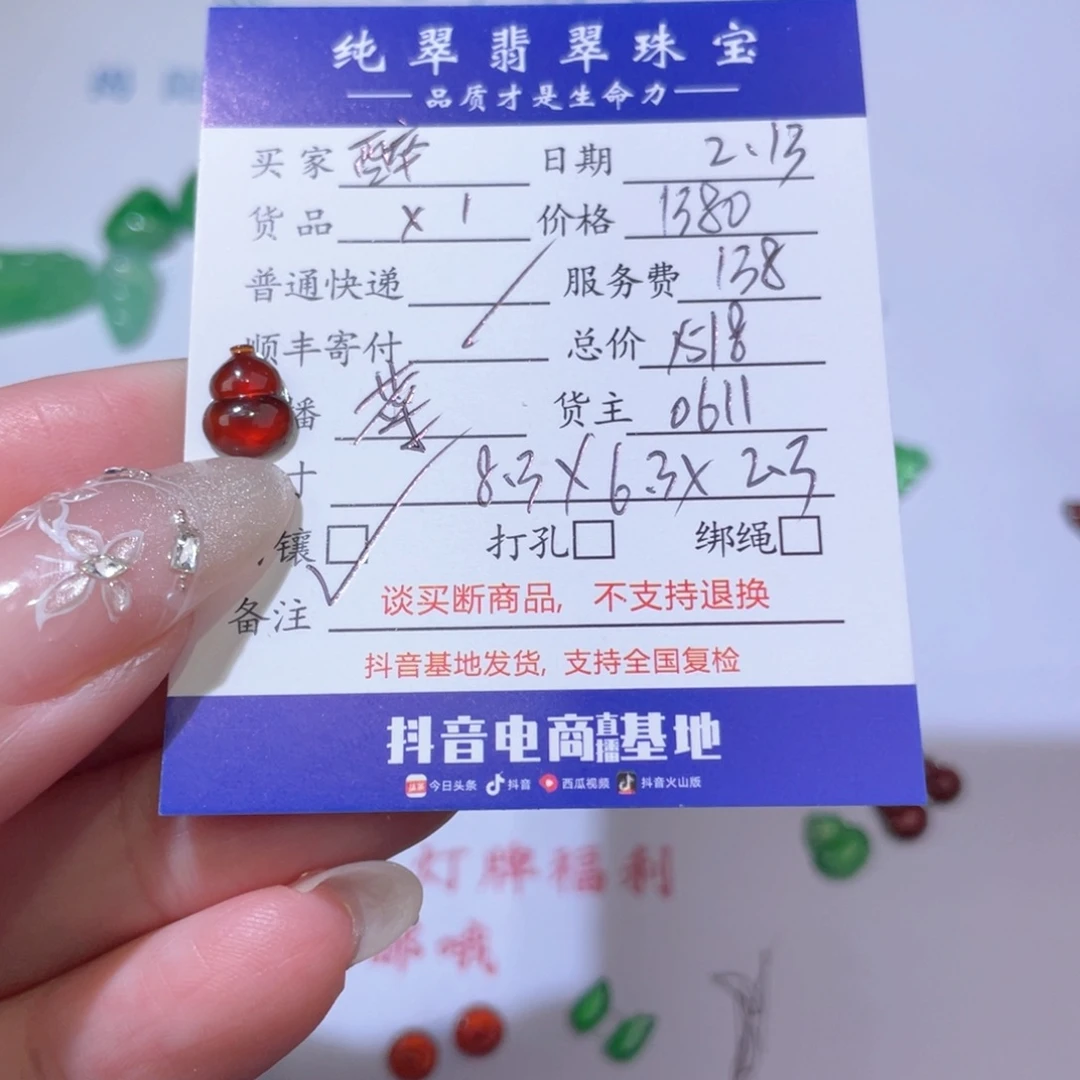 纯翠翡翠珠宝
品质才是生命力
买家 日期 2.13
货品 X 1 价格 1380
普通快递 服务费 138
顺丰寄付 总价 1518
播 货主 0611
寸 8.3X6.3X2.3
镶 打孔 绑绳
备注 谈买断商品, 不支持退换
抖音基地发货, 支持全国复检
抖音电商直播基地
今日头条 抖音 西瓜视频 抖音火山版
灯牌福利
哦